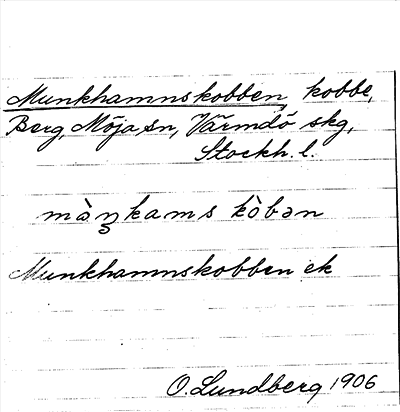 Munkhamnskobben, kobbe,
Berg, Möja sn, Värmdö skg,
Stockh. l.
màŋkams kòbən
Munkhamnskobben ek
O. Lundberg 1906